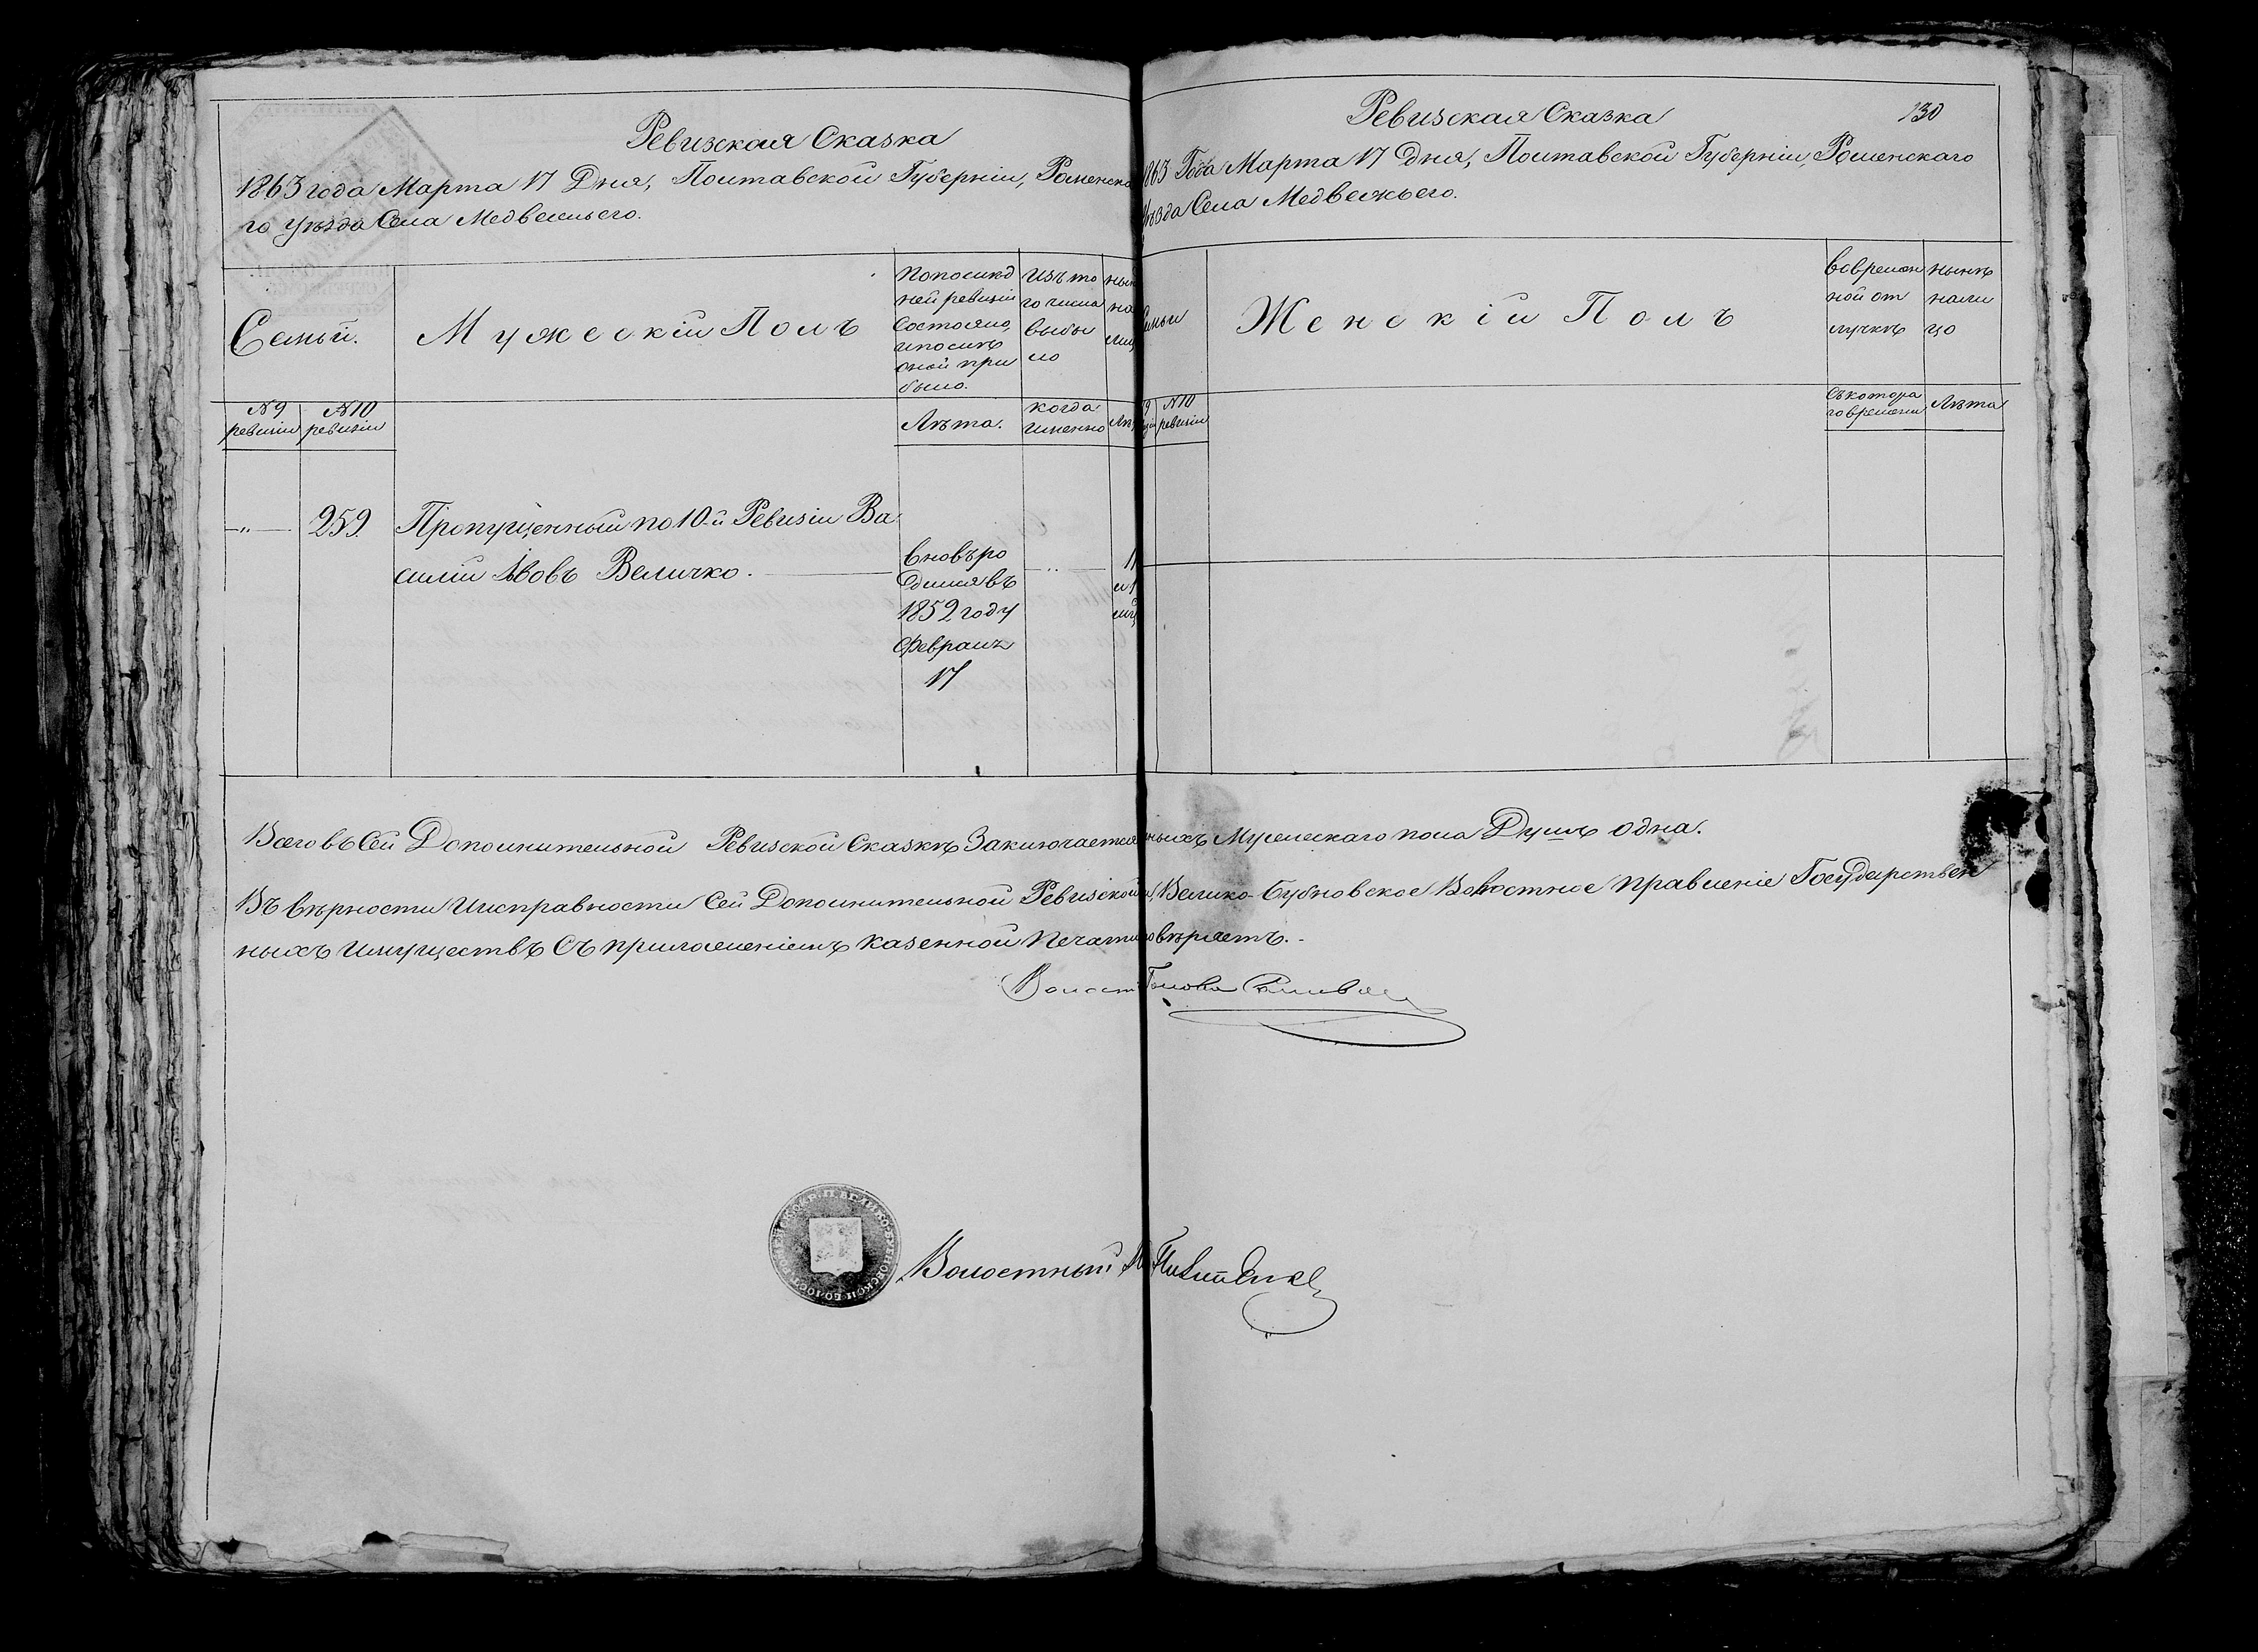 Ревизская Сказка
1863 года Марта 17 Дня, Полтавской Губерніи, Роменска
го Уѣзда Села Медвежьего.
Семьи.
Мужескій Полъ
По послѣд
ней ревизіи
состояло,
и послѣ
оной при
было.
Изъ то
го числа
выбы
ло
ны
на
ли
№ 9
ревизіи
№ 10
ревизіи
Лѣта.
когда
именно
Лѣ
—„—
259.
Пропущенный по 10-й Ревизіи Ва
силій Львовъ Величко.
вновь ро
дился въ
1852 году
Февраля
17
„
11
Ревизская Сказка
130
1863 Года Марта 17 Дня, Полтавской Губерніи, Роменскаго
Уѣзда Села Медвежьего.
Женскій Полъ
во времен
ной от
лучкѣ
нынѣ
нали
цо
9
№ 10
ревизіи
съ котора
го времени
Лѣта
Всего въ Сей Дополнительной Ревизской Сказкѣ Заключается ныхъ Мужескаго пола Душъ одна.
Въ вѣрности и исправности Сей Дополнительной Ревизской Велико-Бубновское Волостное Правленіе Государствен
ныхъ Имуществъ Съ приложеніемъ Казенной Печати вѣряетъ.
Волост Голова
Волостный